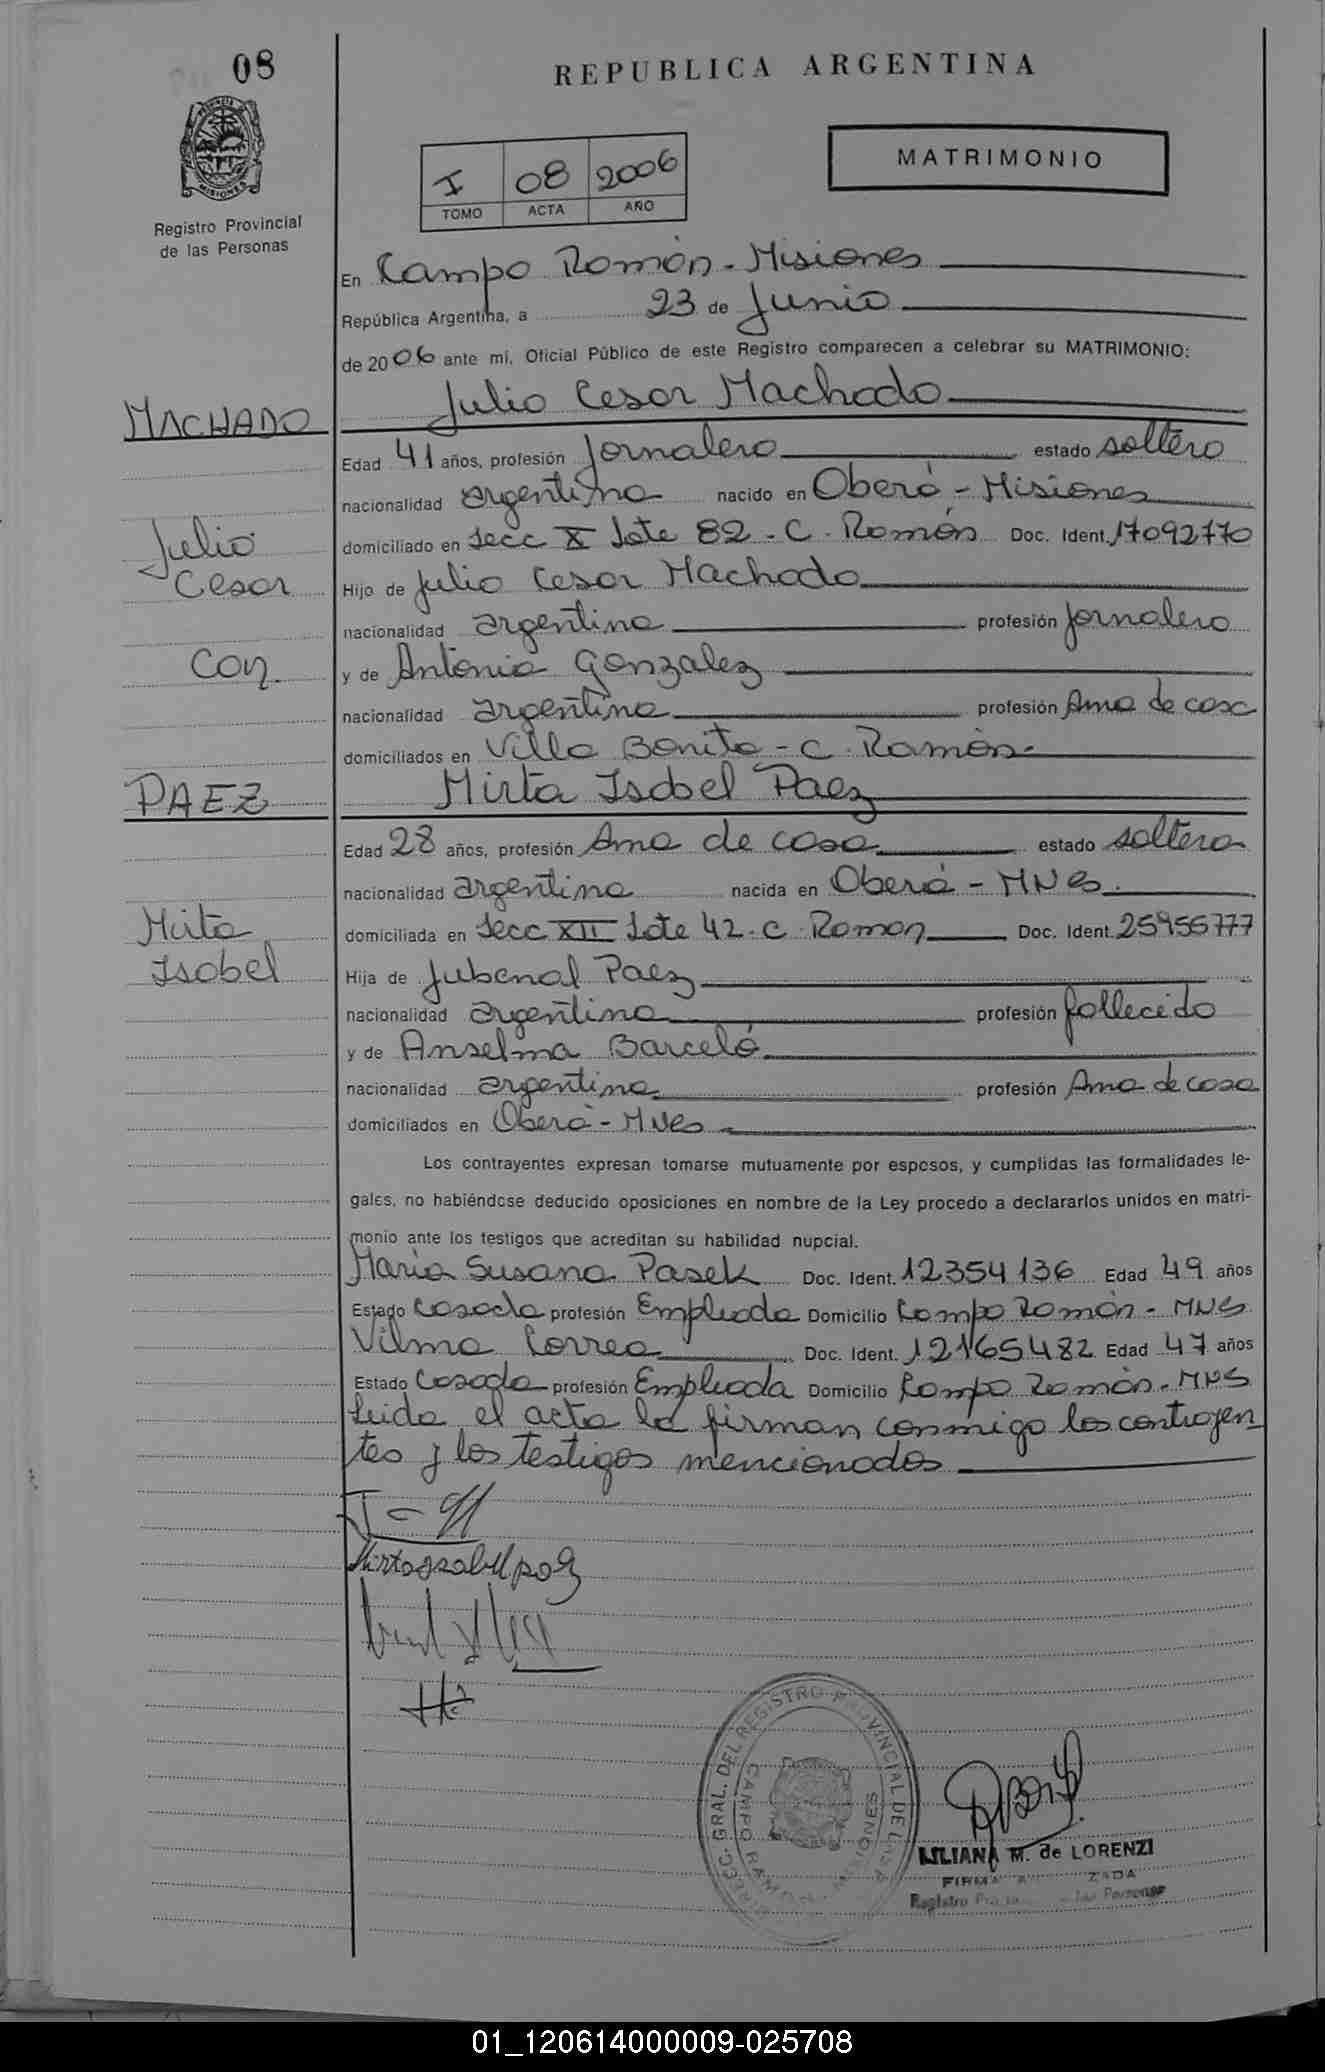 08
REPUBLICA ARGENTINA
MATRIMONIO
I 08 2006
TOMO ACTA AÑO
Registro Provincial
de las Personas
En Campo Ramón - Misiones
República Argentina, a 23 de Junio
de 2006 ante mi, Oficial Público de este Registro comparecen a celebrar su MATRIMONIO:
MACHADO
Julio Cesar Machado
Edad 41 años, profesión Jornalero estado soltero
nacionalidad argentina nacido en Oberá - Misiones
Julio
Cesar
domiciliado en Secc X Lote 82 - C. Ramón Doc. Ident. 17092770
Hijo de Julio Cesar Machado
nacionalidad argentina profesión Jornalero
con
y de Antonia Gonzalez
nacionalidad argentina profesión Ama de casa
domiciliados en Villa Bonita - C. Ramón.
PAEZ
Mirta Isabel Paez
Edad 28 años, profesión Ama de casa estado soltera
nacionalidad argentina nacida en Oberá - MNes.
Mirta
Isabel
domiciliada en Secc XII Lote 42 - C. Ramon Doc. Ident. 25956777
Hija de Jubenal Paez
nacionalidad argentina profesión fallecido
y de Anselma Barceló
nacionalidad argentina profesión Ama de casa
domiciliados en Oberá - MNes
Los contrayentes expresan tomarse mutuamente por esposos, y cumplidas las formalidades le-
gales, no habiéndose deducido oposiciones en nombre de la Ley procedo a declararlos unidos en matri-
monio ante los testigos que acreditan su habilidad nupcial.
Maria Susana Pasek Doc. Ident. 12354136 Edad 49 años
Estado Casada profesión Empleada Domicilio Campo Ramón - MNes
Vilma Correa Doc. Ident. 12165482 Edad 47 años
Estado Casada profesión Empleada Domicilio Campo Ramón - MNes
Leida el acta la firman conmigo los contrayen
tes y los testigos mencionados
Mirta Isabel paez
DIREC. GRAL. DEL REGISTRO PROVINCIAL DE LAS P.
CAMPO RAMON MISIONES
LILIANA M. de LORENZI
FIRMA
Registro
Personas
01_120614000009-025708